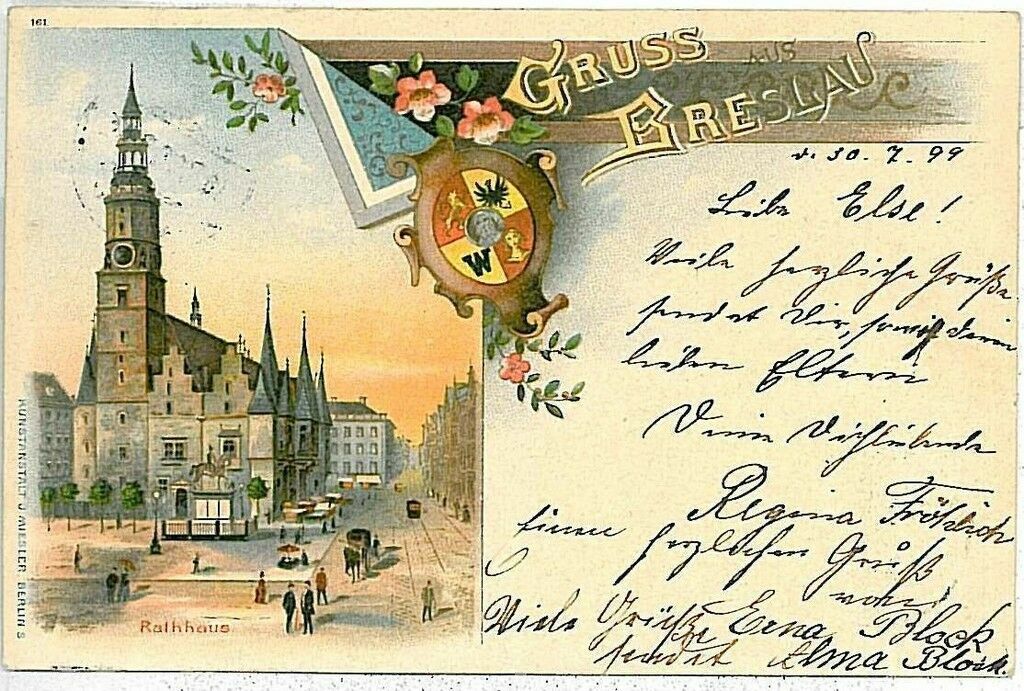 161.
GRUSS
AUS
BRESLAU
W
d. 30. 7. 99
Liebe Else!
Viele herzliche Grüße
sendet Dir, sowie deinen
lieben Eltern
Deine Dichliebende
Regina Fröhlich
einen herzlichen Gruß
von
Viele Grüße Erna Block
sendet Alma Block.
Rathhaus
KUNSTANSTALT J. MIESLER BERLIN S